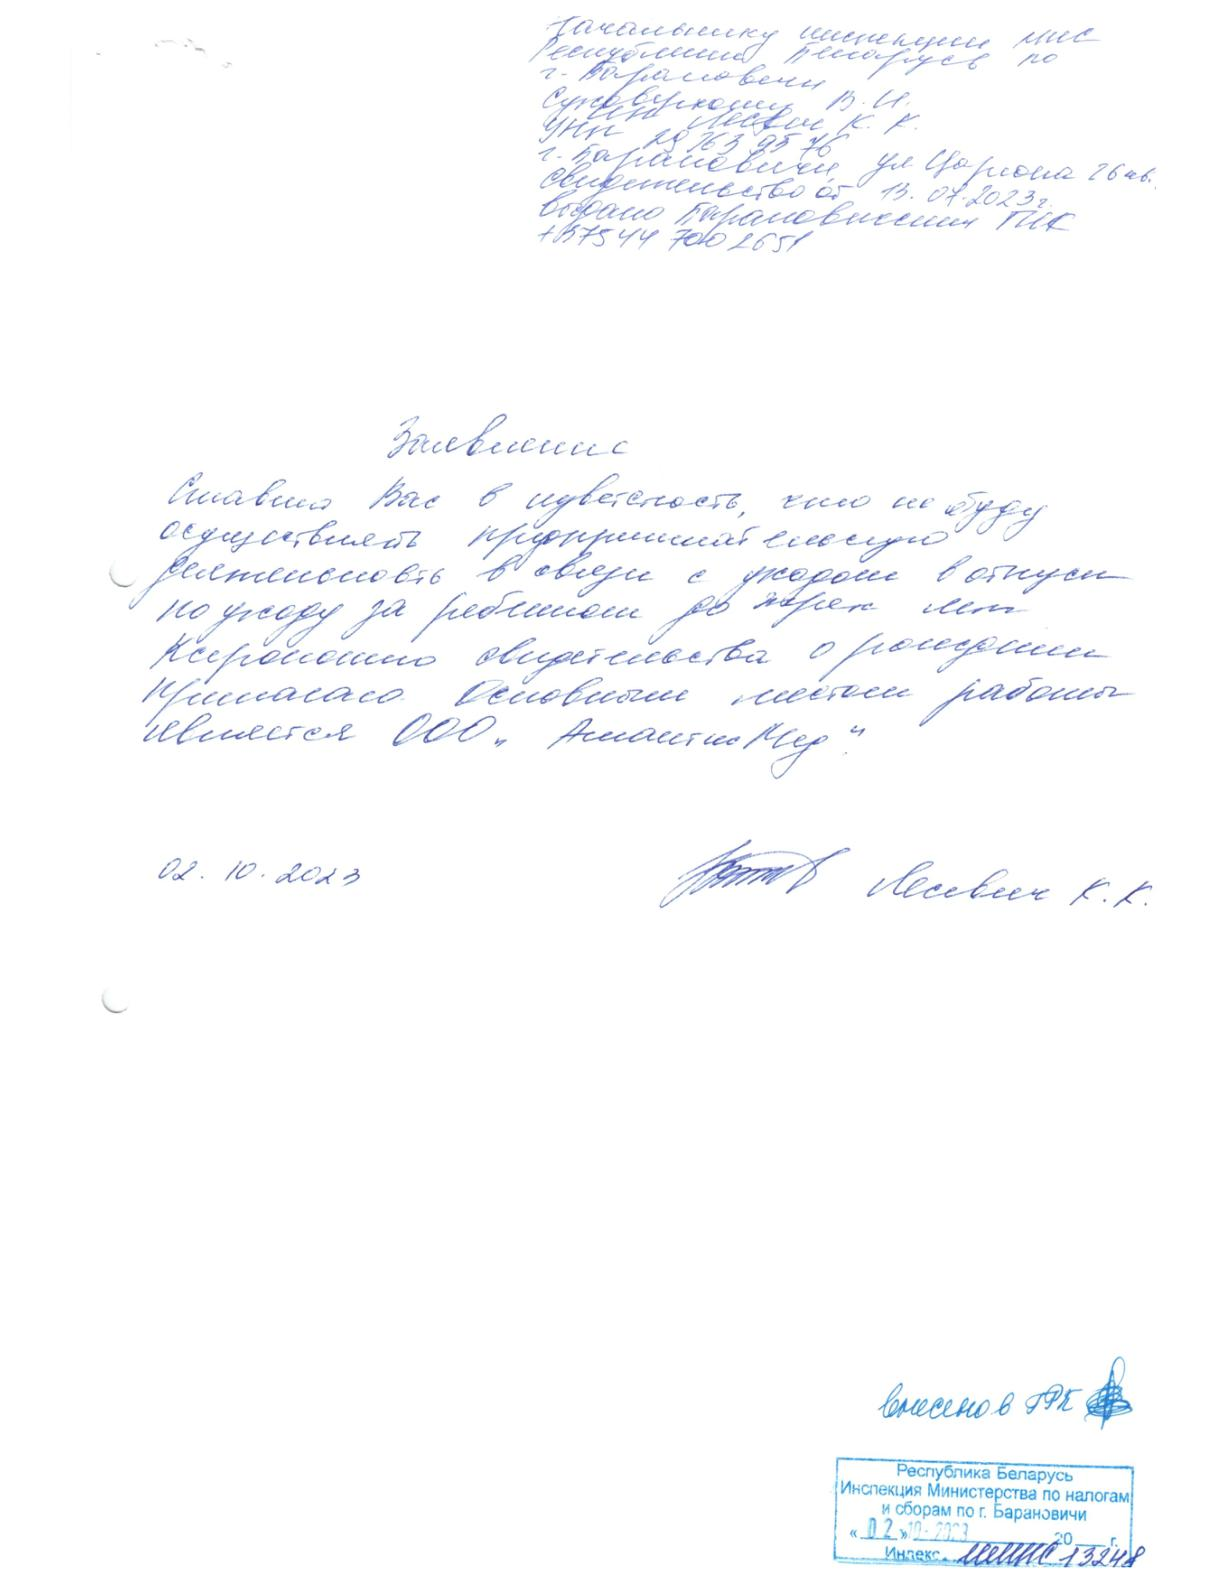 Начальнику инспекции МНС
Республики Беларусь по
г. Барановичи
В. И.
ИП Лесевич К. К.
УНП 29163 9576
г. Барановичи, ул 26 кв.
свидетельство от 13.07.2023г.
выдано Барановичским ГИК
+37544 700 2651
Заявление
Ставлю Вас в известность, что не буду
осуществлять предпринимательскую
деятельность в связи с уходом в отпуск
по уходу за ребенком до трех лет
Ксерокопию свидетельства о рождении
прилагаю. Основным местом работы
является ООО „ АтлантисМед".
02. 10. 2023
Лесевич К. К.
внесено в ГРК
Республика Беларусь
Инспекция Министерства по налогам
и сборам по г. Барановичи
« 02 » 10-2023 20 г.
Индекс 13248